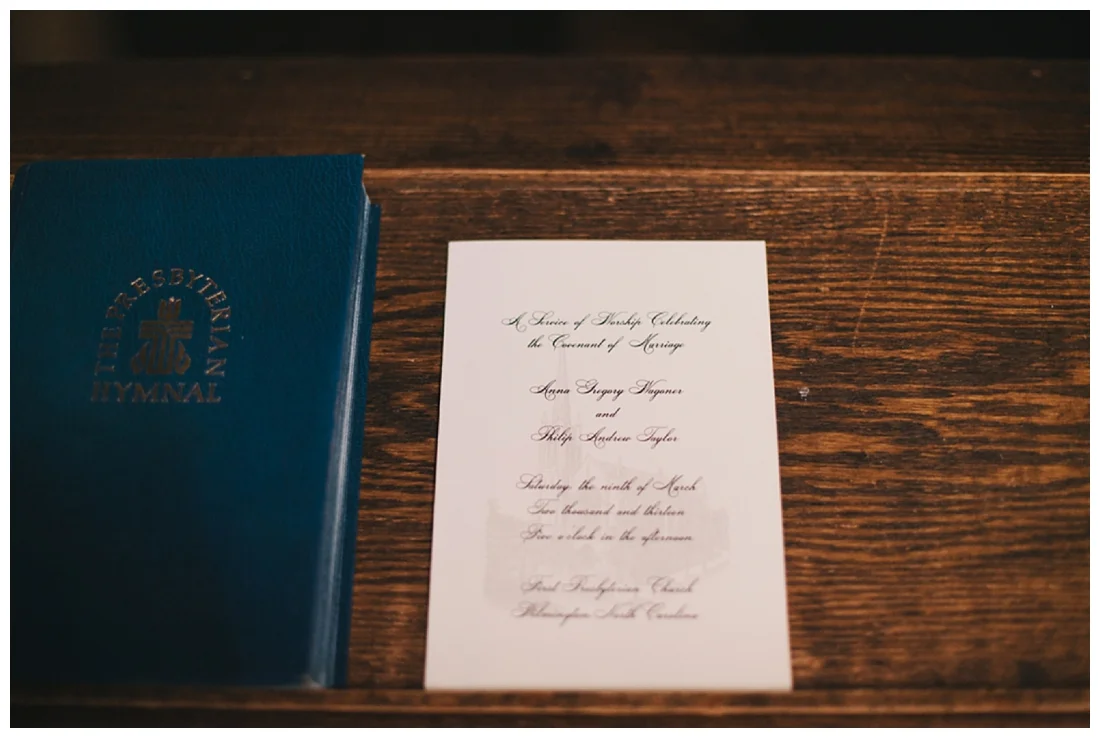 THE PRESBYTERIAN
HYMNAL
A Service of Worship Celebrating
the Covenant of Marriage
Anna Gregory Wagoner
and
Philip Andrew Taylor
Saturday, the ninth of March
Two thousand and thirteen
Five o'clock in the afternoon
First Presbyterian Church
Wilmington North Carolina